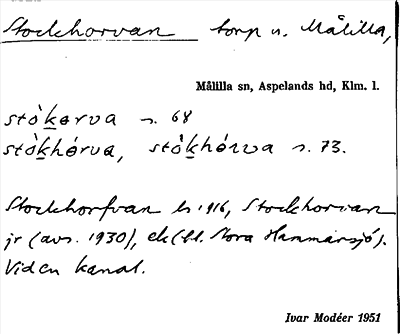 Stockhorvan torp u. Målilla,
Målilla sn, Aspelands hd, Klm. l.
stòkərva s. 68
stòkhórva, stòkhórva s. 73.
Stockhorfvan hs 1916, Stockhorvan
jr (avs. 1930), ek (bl. Stora Hammarsjö).
Vid en kanal.
Ivar Modéer 1951